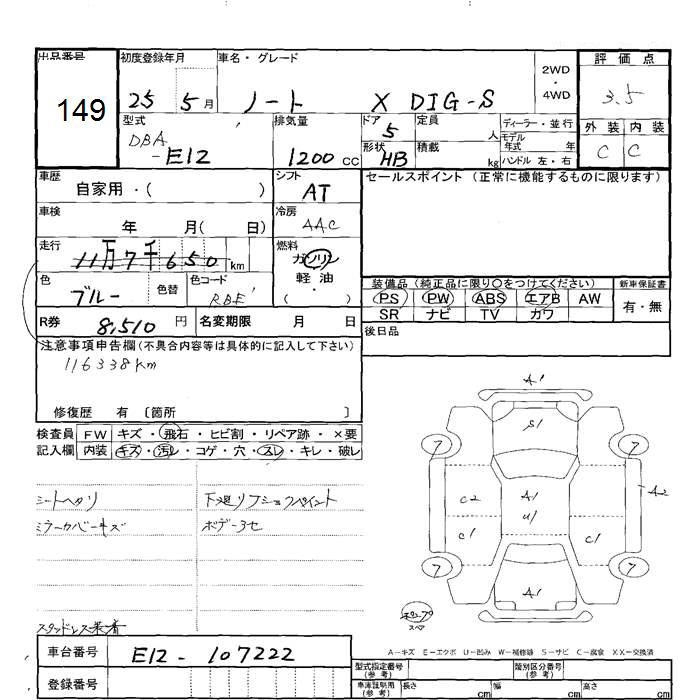 出品番号
149
初度登録年月
25 5月
車名・グレード
ノート X DIG-S
2WD
・
4WD
評価点
3.5
外装 内装
C C
型式
DBA
-E12
排気量
1200 cc
ドア
5
形状
HB
定員
人
積載
kg
ディーラー・並行
モデル
年式 年
ハンドル 左・右
車歴
自家用・( )
シフト
AT
車検
年 月( 日)
冷房
AAC
走行
11万7千650 km
燃料
ガソリン
軽油
( )
色
ブルー
色替
色コード
RBE
R券
8,510 円
名変期限 月 日
セールスポイント (正常に機能するものに限ります)
装備品 (純正品に限り○をつけてください)
新車保証書
PS PW ABS エアB AW
SR ナビ TV カワ
有・無
後日品
注意事項申告欄(不具合内容等は具体的に記入して下さい)
116338km
修復歴 有 〔箇所 〕
検査員
記入欄
FW キズ・飛石・ヒビ割・リペア跡・×要
内装 キズ・汚レ・コゲ・穴・スレ・キレ・破レ
シートヘタリ
ミラーカバーキズ
ボデーヨセ
スタッドレス装着
A1
S1
7 7
C2 A1 A2
U1
C1 C1
7 7
A1
スペア
A-キズ E-エクボ U-凹み W-補修跡 S-サビ C-腐食 XX-交換済
車台番号
E12-107222
登録番号
型式指定番号
(参考)
類別区分番号
(参考)
車庫証明用
(参考)
長さ cm 幅 cm 高さ cm